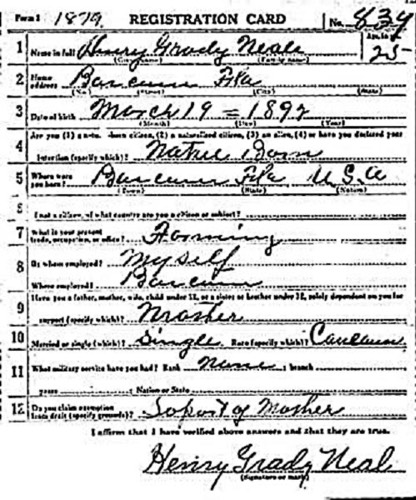 Form 1 1879 REGISTRATION CARD No. 839
1 Name in full Henry Grady Neal Age, in yrs.
(Given name) (Family name) 25
2 Home address Barcum Fla
(No.) (Street) (City) (State)
3 Date of birth March 19 = 1892
(Month) (Day) (Year)
Are you (1) a natural-born citizen, (2) a naturalized citizen, (3) an alien, (4) or have you declared your
4 intention (specify which)? Natrel Born
5 Where were you born? Fla U.S.A
(Town) (State) (Nation)
6 If not a citizen, of what country are you a citizen or subject?
7 What is your present trade, occupation, or office? Farming
8 By whom employed? Myself
Where employed?
Have you a father, mother, wife, child under 12, or a sister or brother under 12, solely dependent on you for
9 support (specify which)? Mother
10 Married or single (which)? Single Race (specify which)?
11 What military service have you had? Rank None ; branch
years ; Nation or State
12 Do you claim exemption from draft (specify grounds)? Soport of Mother
I affirm that I have verified above answers and that they are true.
Henry Grady Neal
(Signature or mark)